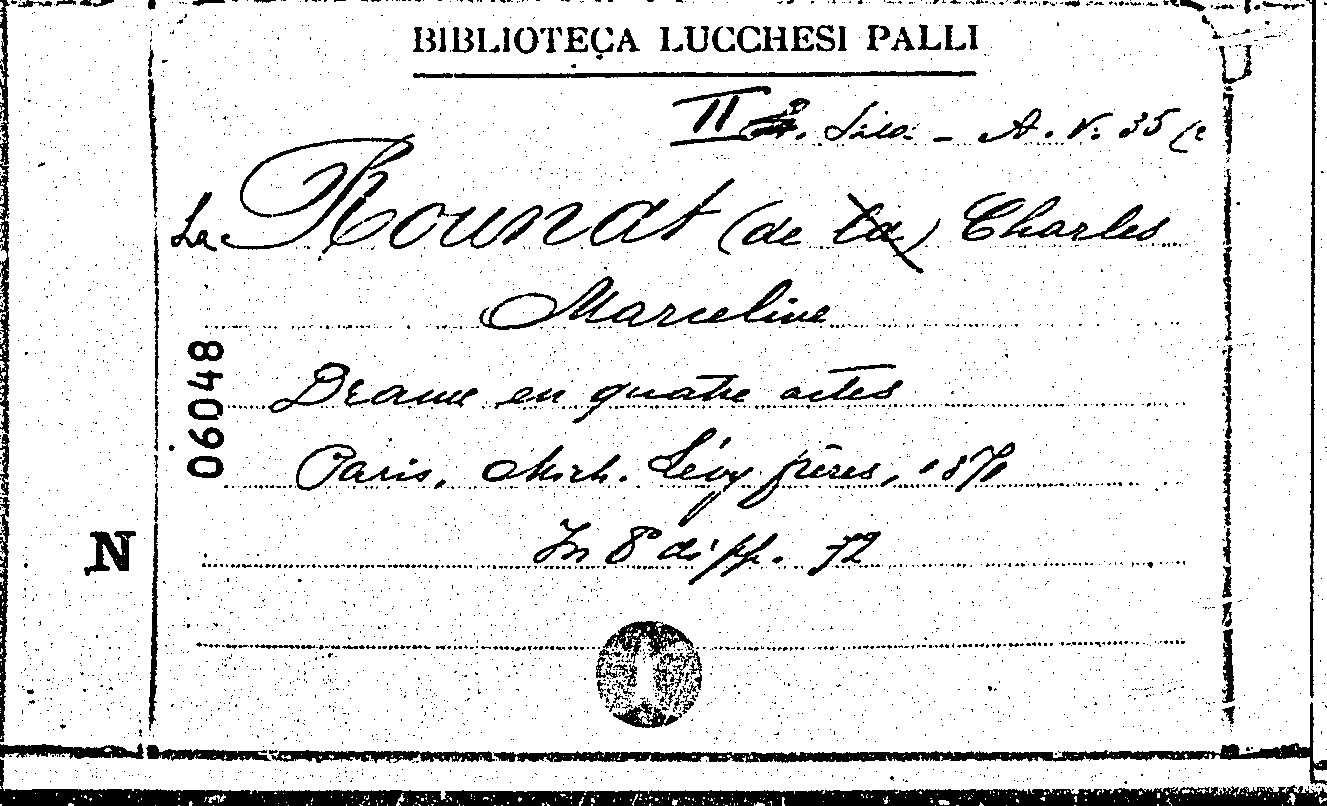 BIBLIOTECA LUCCHESI PALLI
II - A. V. 35 (2
La Rounat (de la) Charles
Marceline
Drame en quatre actes
Paris, Mich. Lévy frères,
In 8° di pp. 72
06048
N